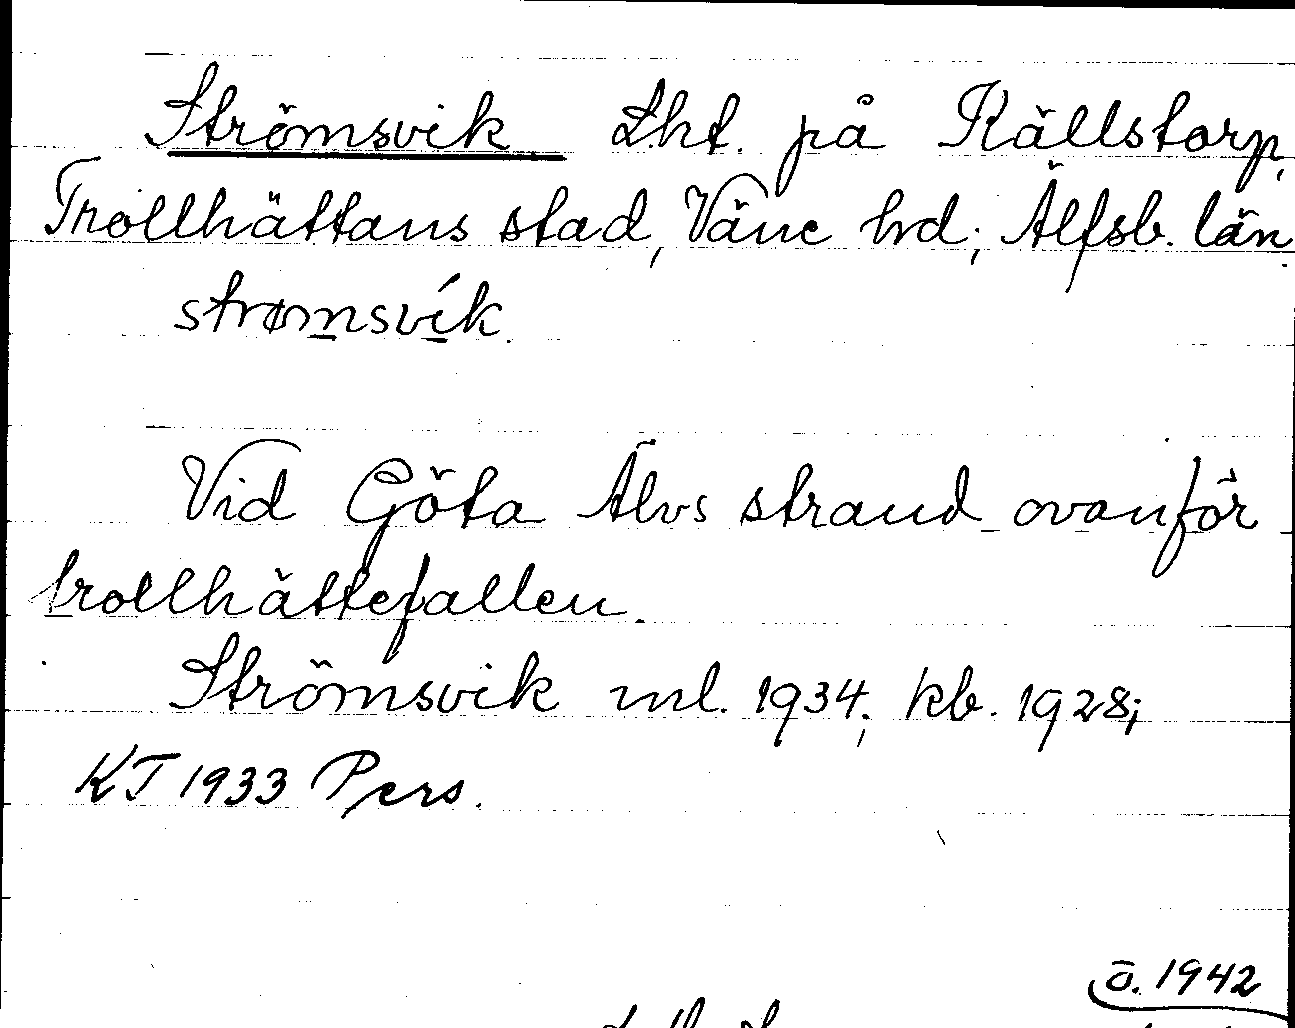 Strömsvik Lht. på Källstorp,
Trollhättans stad, Väne hd; Älfsb. län.
strømsvík.
Vid Göta Älvs strand ovanför
trollhättefallen.
Strömsvik ml. 1934; kb. 1928;
KT 1933 Pers.
ö. 1942